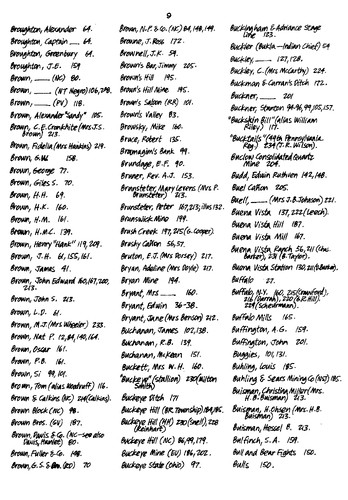 9
Broughton, Alexander 64.
Broughton, Captain __ 64.
Broughton, Greenbury 64.
Broughton, J.E. 159
Brown, ___ (NC) 80.
Brown, ___ (NT Negro) 206, 298.
Brown, ___ (PV) 118.
Brown, Alexander "Sandy" 105.
Brown, C.E. Crankhite (Mrs. J.S. Brown) 213.
Brown, Fidelia (Mrs. Hawkins) 219.
Brown, G.W. 158.
Brown, George 77.
Brown, Giles S. 70.
Brown, H.H. 69.
Brown, H.K. 160.
Brown, H.M. 161.
Brown, H.M.C. 139.
Brown, Henry "Hank" 119, 209.
Brown, J.H. 61, 155, 161.
Brown, James 41.
Brown, John Edward 160, 167, 200, 213.
Brown, John S. 213.
Brown, L.D. 61.
Brown, M.J. (Mrs Wheeler) 233.
Brown, Nat P. 12, 84, 140, 164.
Brown, Oscar 161.
Brown, P.B. 161.
Brown, Si 99, 101.
Brown, Tom (alias Woodruff) 116.
Brown & Calkins (NC) 214 (Calkins).
Brown Block (NC) 98.
Brown Bros. (GV) 187.
Brown, Davis & Co. (NC - see also Davis, Hamlet) 80.
Brown, Fuller & Co. 148.
Brown, G.S. & Bro. (RO) 70
Brown, N.P. & Co. (NC) 84, 148, 149.
Browne, J. Ross 172.
Brownell, J.K. 59.
Brown's Bar, Jimmy 205.
Brown's Hill 195.
Brown's Hill Mine 195.
Brown's Saloon (RR) 101.
Brown's Valley 83.
Browsky, Mike 160.
Bruce, Robert 135.
Brugmagim's Bank 99.
Brundage, B.F. 90.
Bruner, Rev. A.J. 153.
Brunstetter, Mary Levens (Mrs. P. Brunstetter) 213.
Brunstetter, Peter 167, 213; illus. 132.
Brunswick Mine 199.
Brush Creek 197, 215 (G. Cooper).
Brushy Cañon 56, 57.
Bruton, E.J. (Mrs Dorsey) 217.
Bryan, Adaline (Mrs Doyle) 217.
Bryan Mine 194.
Bryant, Mrs. ___ 160.
Bryant, Edwin 36-38.
Bryant, Jane (Mrs Benson) 212.
Buchanan, James 102, 138.
Buchanan, R.B. 139.
Buchanan, McKean 151.
Buckett, Mrs W.H. 160.
"Buckeye" (stallion) 230 (Wilton Smith)
Buckeye Ditch 171
Buckeye Hill (BR. Township) 184, 185.
Buckeye Hill (HH) 230 (Snell), 228 (Reinhart)
Buckeye Hill (NC) 86, 99, 179.
Buckeye Mine (EU) 186, 202.
Buckeye State (Ohio) 97.
Buckingham & Adriance Stage Line 123.
Buckler (Bukla - Indian Chief) 59
Buckley, ___ 127, 128.
Buckley, C. (Mrs McCarthy) 224.
Buckman & Carran's Ditch 172.
Buckner, ___ 201
Buckner, Stanton 94-96, 99, 105, 157.
"Buckskin Bill" (alias William Riley) 117.
"Bucktails" (49th Pennsylvania Reg.) 234 (J.R. Wilson).
Buclow Consolidated Quartz Mine 204.
Budd, Edwin Ruthven 142, 148.
Buel Cañon 205.
Buell, ___ (Mrs J.B. Johnson) 221.
Buena Vista 137, 222 (Leech).
Buena Vista Hill 187.
Buena Vista Mill 187.
Buena Vista Ranch 56, 211 (Chas. Barker), 231 (B. Taylor).
Buena Vista Station 130, 211 (Barker).
Buffalo 27.
Buffalo, N.Y. 160, 215 (Crawford), 216 (Darrah), 220 (G.R. Hill), 229 (Sukeforth).
Buffalo Mills 165.
Buffington, A.G. 159.
Buffington, John 201.
Buggies, 101, 131.
Buhling, Louis 185.
Buhling & Sears Mining Co (NSJ) 185.
Buisman, Christina Miller (Mrs. H.B. Buisman) 213.
Buisman, H. Ohsen (Mrs. H.B. Buisman) 213.
Buisman, Hessel B. 213.
Bulfinch, S.A. 159.
Bull and Bear Fights 150.
Bulls 150.